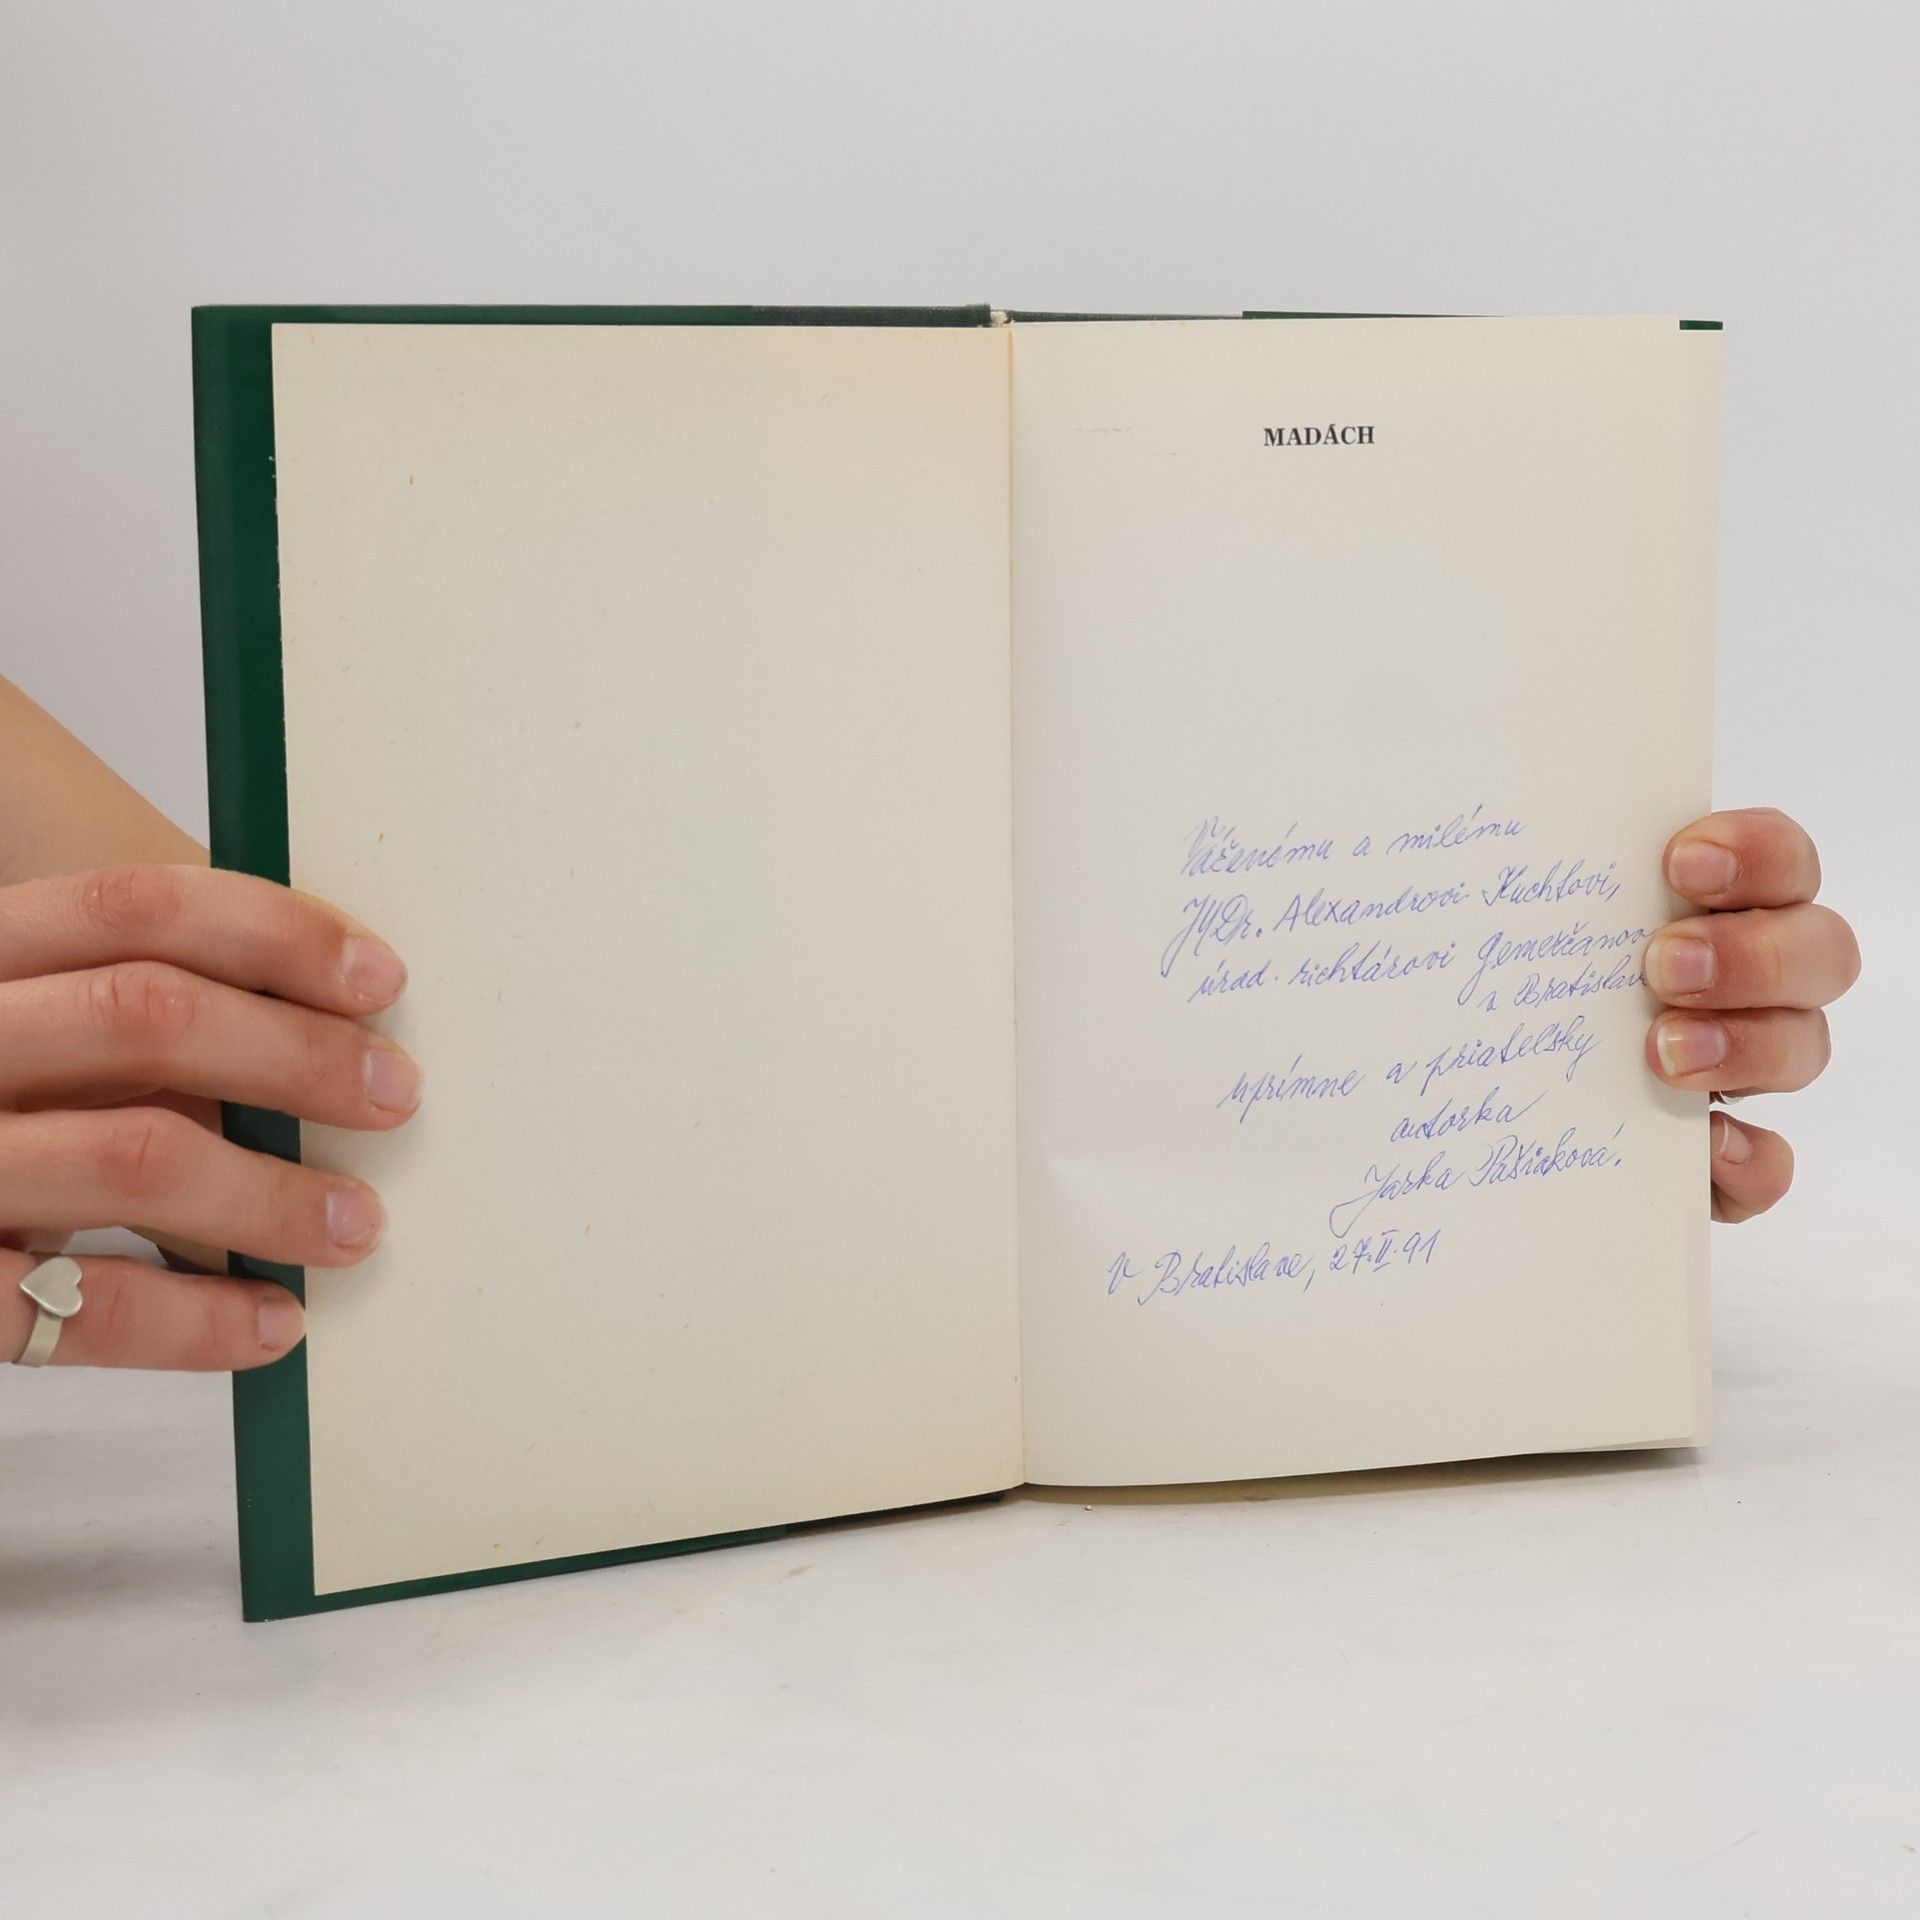 MADÁCH
Váženému a milému
JUDr. Alexandrovi Kuchtovi,
úrad. richtárovi Gemerčanov
v Bratislave
úprimne a priateľsky
autorka
Jarka Pašiaková.
V Bratislave, 27.II.91